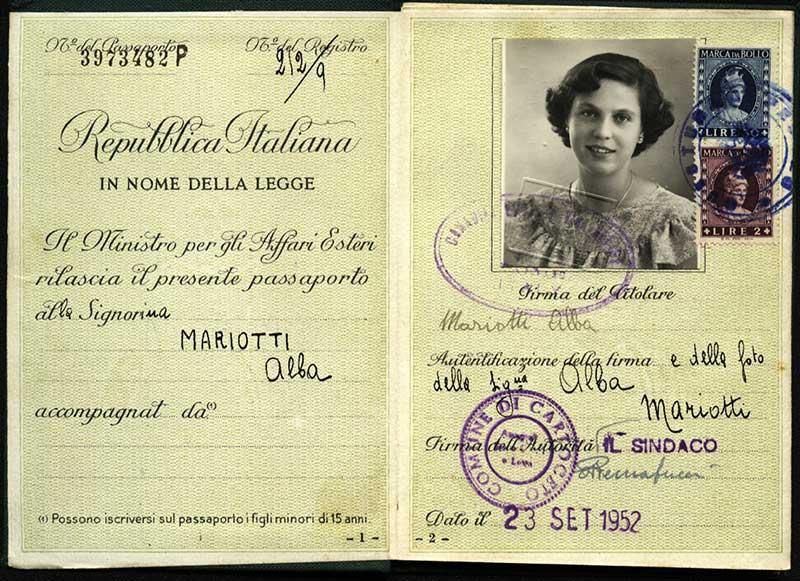 Nº del Passaporto Nº del Registro
3973482 P 212/9
Repubblica Italiana
IN NOME DELLA LEGGE
Il Ministro per gli Affari Esteri
rilascia il presente passaporto
alla Signorina
MARIOTTI
Alba
accompagnat da(1)
(1) Possono iscriversi sul passaporto i figli minori di 15 anni.
- 1 -
MARCA DA BOLLO
LIRE
MARCA DA BOLLO
LIRE 2
Firma del Titolare
Mariotti Alba
Autentificazione della firma e della foto
della Signa Alba
Mariotti
COMUNE DI CARTOCETO
Firma dell'Autorità IL SINDACO
Dato il 23 SET 1952
- 2 -